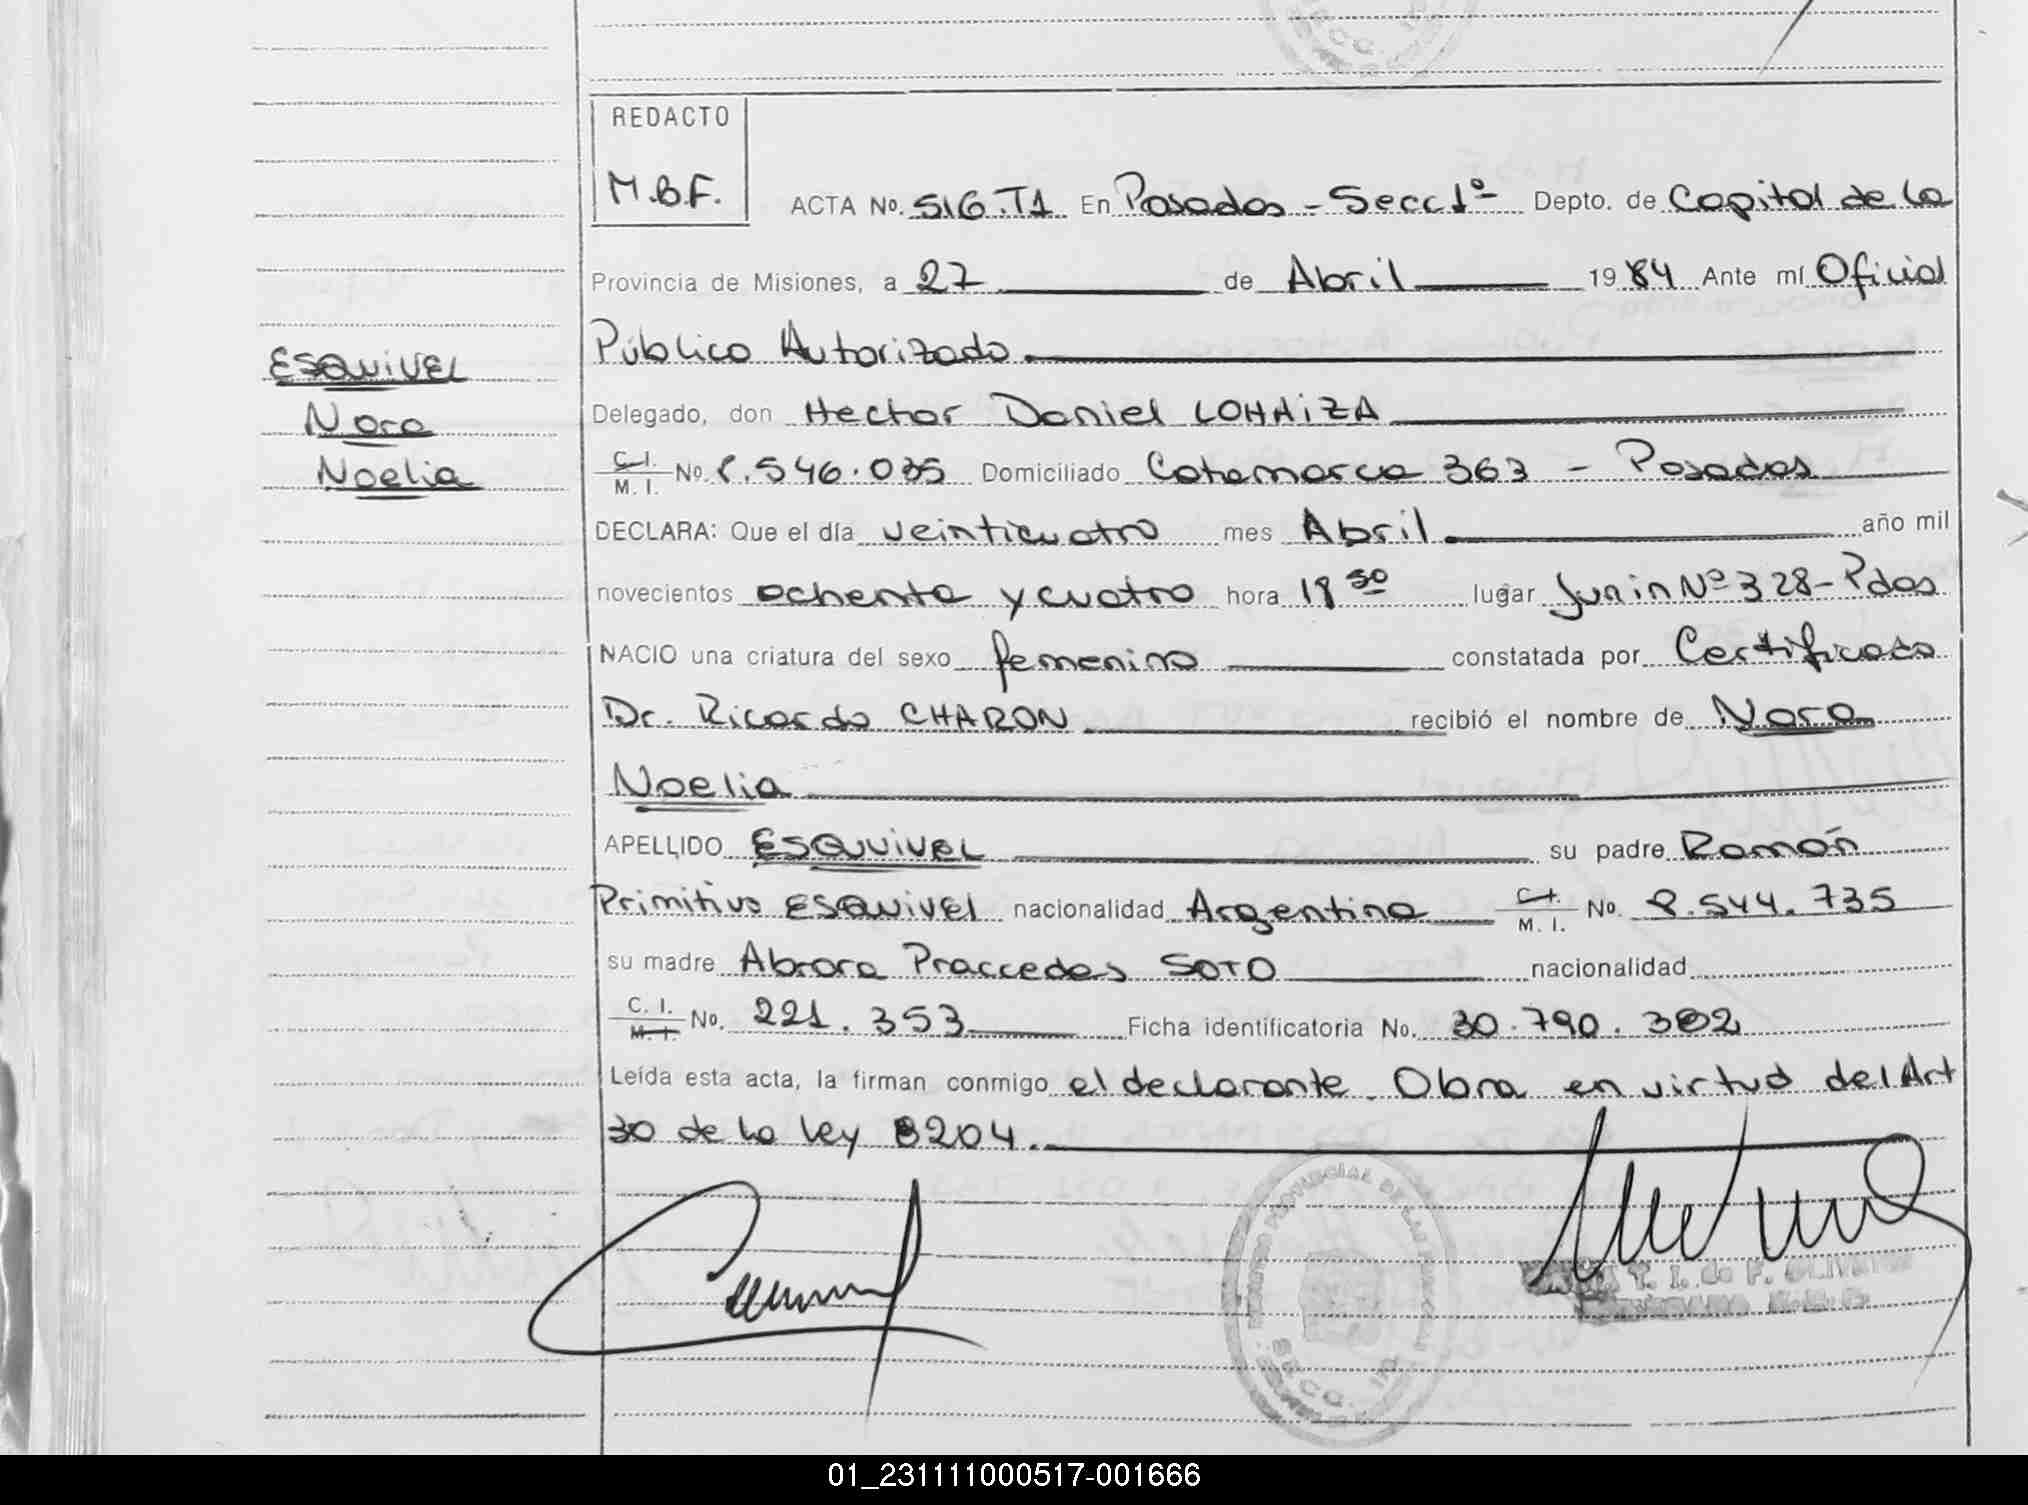 REDACTO
M.B.F.
ACTA No. 516.T1 En Posadas - Secc 1º Depto. de Capital de la
Provincia de Misiones, a 27 de Abril 1984 Ante mí Oficial
Público Autorizado.
ESQUIVEL
Nora
Noelia
Delegado, don Hector Daniel LOHAIZA
C.I. M.I. No. 8.546.035 Domiciliado Catamarca 363 - Posadas
DECLARA: Que el día veinticuatro mes Abril. año mil
novecientos ochenta y cuatro hora 18 50 lugar Junin Nº 328 - Pdas
NACIO una criatura del sexo femenino constatada por Certificado
Dr. Ricardo CHARON recibió el nombre de Nora
Noelia
APELLIDO ESQUIVEL su padre Ramón
Primitivo ESQUIVEL nacionalidad Argentina C.I. M.I. No. 8.544.735
su madre Abrora Praccedes SOTO nacionalidad
C.I. M.I. No. 221.353 Ficha identificatoria No. 30.790.382
Leída esta acta, la firman conmigo el declarante. Obra en virtud del Art
30 de la Ley 8204.
REGISTRO PROVINCIAL DE LAS PERSONAS
SECC. 1ra
T. I. de F. OLIVEIRA
01_231111000517-001666